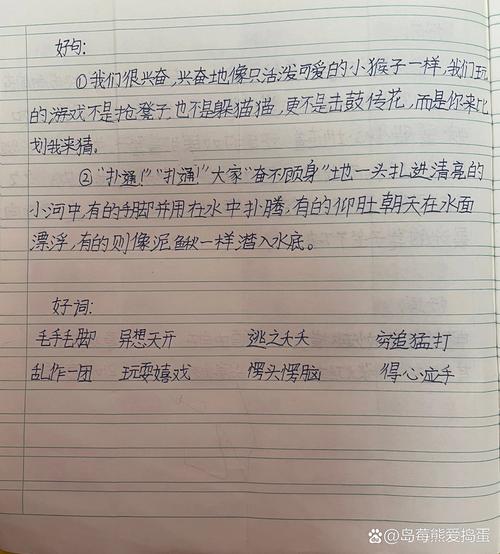 好句:
①我们很兴奋,兴奋地像只活泼可爱的小猴子一样,我们玩
的游戏不是抢凳子也不是躲猫猫,更不是击鼓传花,而是你来比
划我来猜。
②“扑通!”“扑通!”大家“奋不顾身”地一头扎进清亮的
小河中,有的手脚并用在水中扑腾,有的仰肚朝天在水面
漂浮,有的则像泥鳅一样潜入水底。
好词:
毛手毛脚 异想天开 逃之夭夭 穷追猛打
乱作一团 玩耍嬉戏 愣头愣脑 得心应手
百家号/岛莓熊爱捣蛋